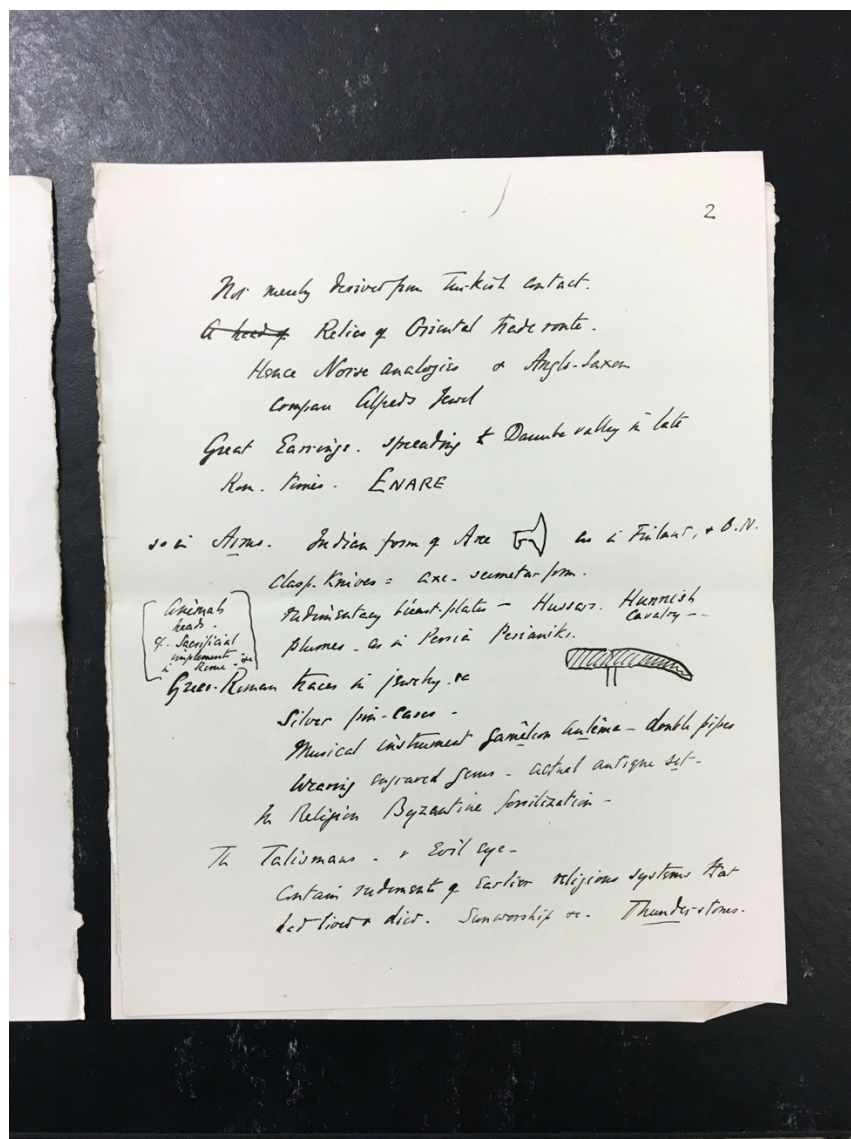 2
Not merely derived from Turkish contact.
A head of Relics of Oriental trade route.
Hence Norse analogies & Anglo-Saxon
compare Alfreds Jewel
Great Earrings. spreading to Danube valley in late
Rom. times. ENARE
so in Arms. Indian form of Axe as in Finland, &
Clasp. Knives = axe-scimetar form.
rudimentary breast-plates - Hussars. Hunnish
Cavalry -
plumes. as in Persia Persianiks.
Animals
heads.
cf. Sacrificial
implements
in Rome
Greco-Roman traces in jewelry. &c
Silver pin-cases -
Musical instrument antêma - double pipes
Wearing engraved gems - actual antique set -
In Religion Byzantine fossilization -
In Talismans. & Evil eye -
Contain rudiments of Earlier religious systems that
had lived & died. Sunworship &c. Thunder-stones.